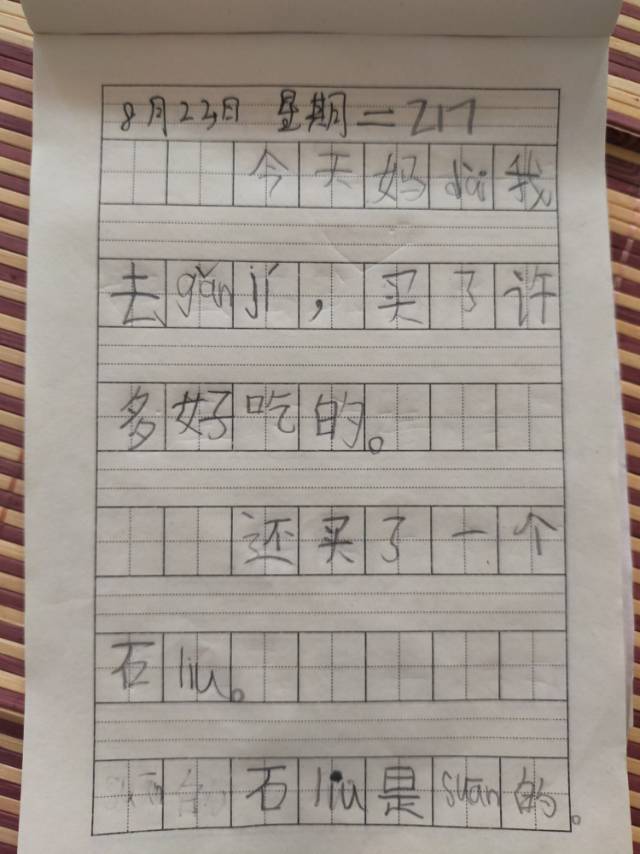 8月23日 星期二 217
今天妈dài我
去gǎnjí，买了许
多好吃的。
还买了一个
石liu。
石liu是suān的。